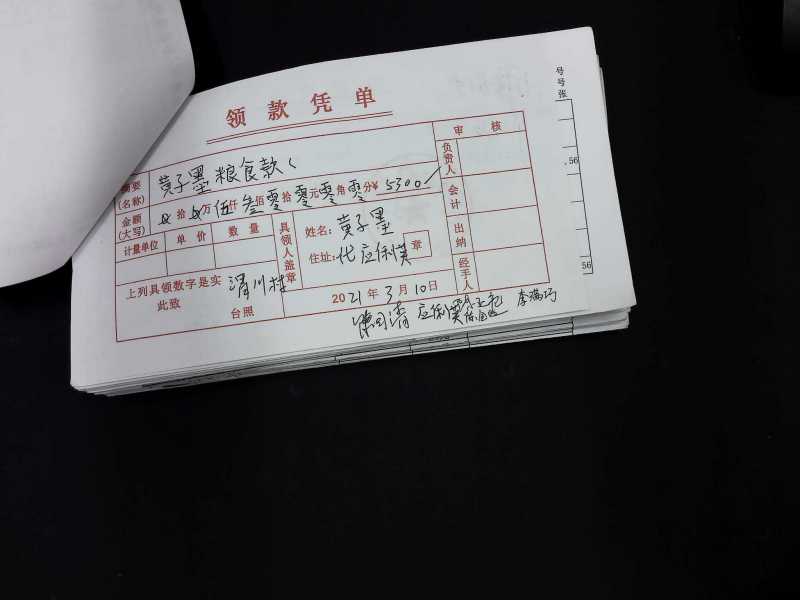 领款凭单
摘要(名称) 黄子墨粮食款
审核
负责人
金额(大写) 拾 万 伍 仟 叁 佰 零 拾 零 元 零 角 零 分 ¥ 5300/
会计
计量单位 单价 数量
具领人盖章
姓名: 黄子墨
出纳
住址: 代应俐慎 章
上列具领数字是实
此致 渭川村 台照
2021年3月10日
经手人
应俐 李满巧
号
号
张
56
56